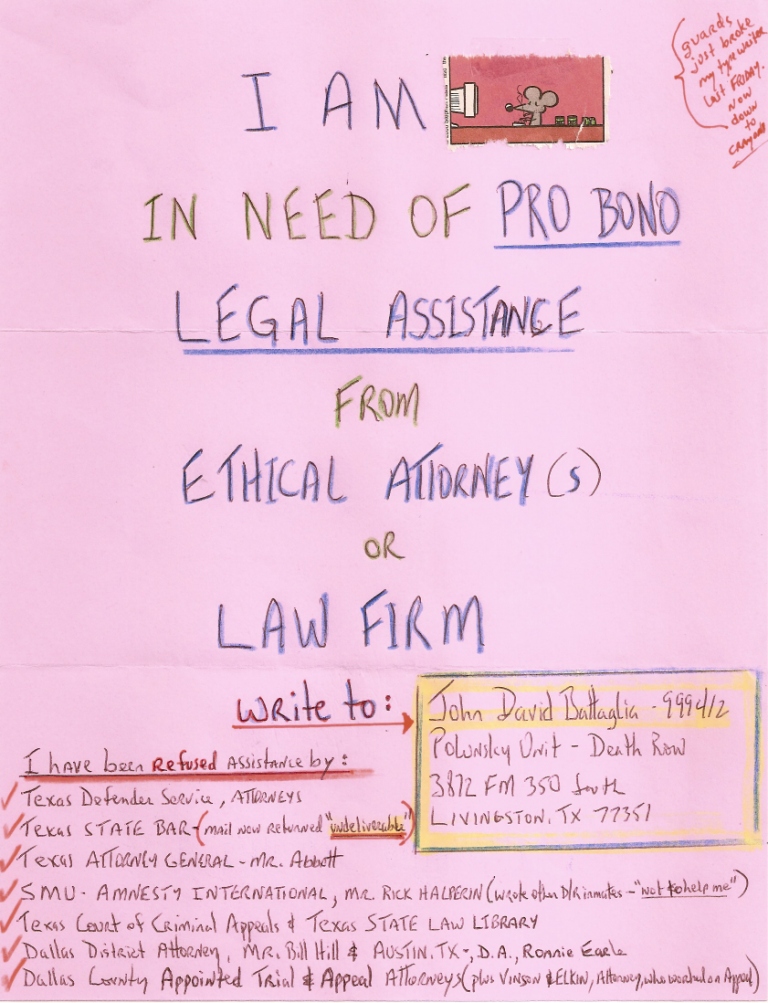 guards
just broke
my typewriter
last FRIDAY.
NOW
down
to
CRAYONS
I AM
IN NEED OF PRO BONO
LEGAL ASSISTANCE
FROM
ETHICAL ATTORNEY(S)
OR
LAW FIRM
write to:
John David Battaglia - 999412
Polunsky Unit - Death Row
3872 FM 350 South
LIVINGSTON, TX 77351
I have been Refused Assistance by:
Texas Defender Service, ATTORNEYS
Texas STATE BAR - (mail now returned "undeliverable")
Texas ATTORNEY GENERAL - Mr. Abbott
SMU - AMNESTY INTERNATIONAL, MR. RICK HALPERIN (wrote other D/R inmates - "not to help me")
Texas Court of Criminal Appeals & Texas STATE LAW LIBRARY
Dallas District Attorney, MR. Bill Hill & AUSTIN, TX -, D.A., Ronnie Earle
Dallas County Appointed Trial & Appeal Attorneys (plus VINSON & ELKIN, Attorney, who worked on Appeal)